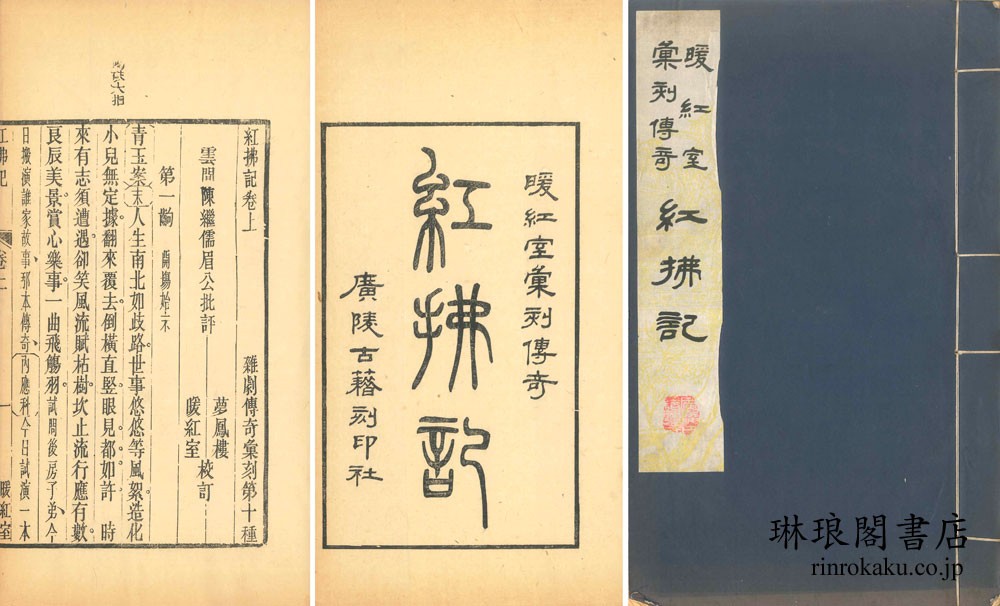 暖紅室
彙刻傳奇
紅拂記
暖紅室彙刻傳奇
紅拂記
廣陵古籍刻印社
紅拂記卷上　雜劇傳奇彙刻第十種
雲間陳繼儒眉公批評　夢鳳樓
暖紅室　校訂
第一齣
青玉案末人生南北如歧路世事悠悠等風絮造化
小兒無定據翻來覆去倒橫直竪眼見都如許　時
來有志須遭遇卻笑風流賦枯樹坎止流行應有數
良辰美景賞心樂事一曲飛觴羽試問後房子弟今
日搬演誰家故事那本傳奇內應科今日試演一本
紅拂記　卷上　一　暖紅室
琳琅閣書店
rinrokaku.co.jp